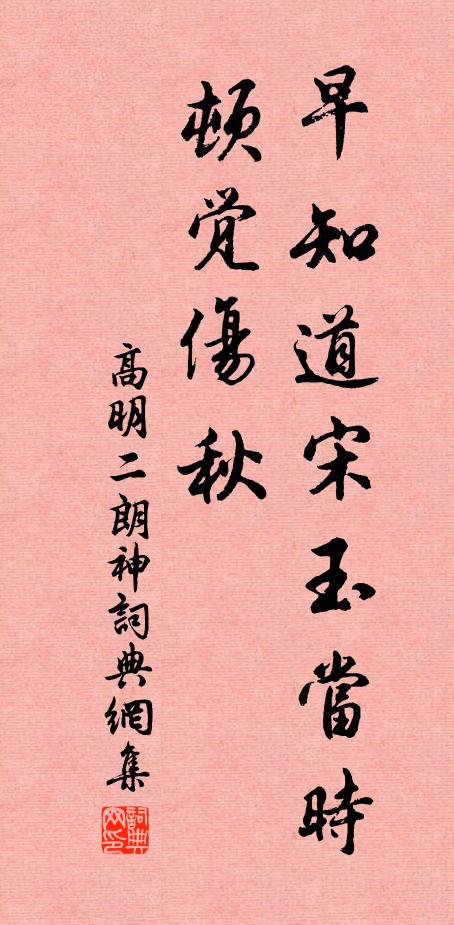 早知道宋玉當時
頓觉傷秋
高明二朗神詞典網集
詞典网印